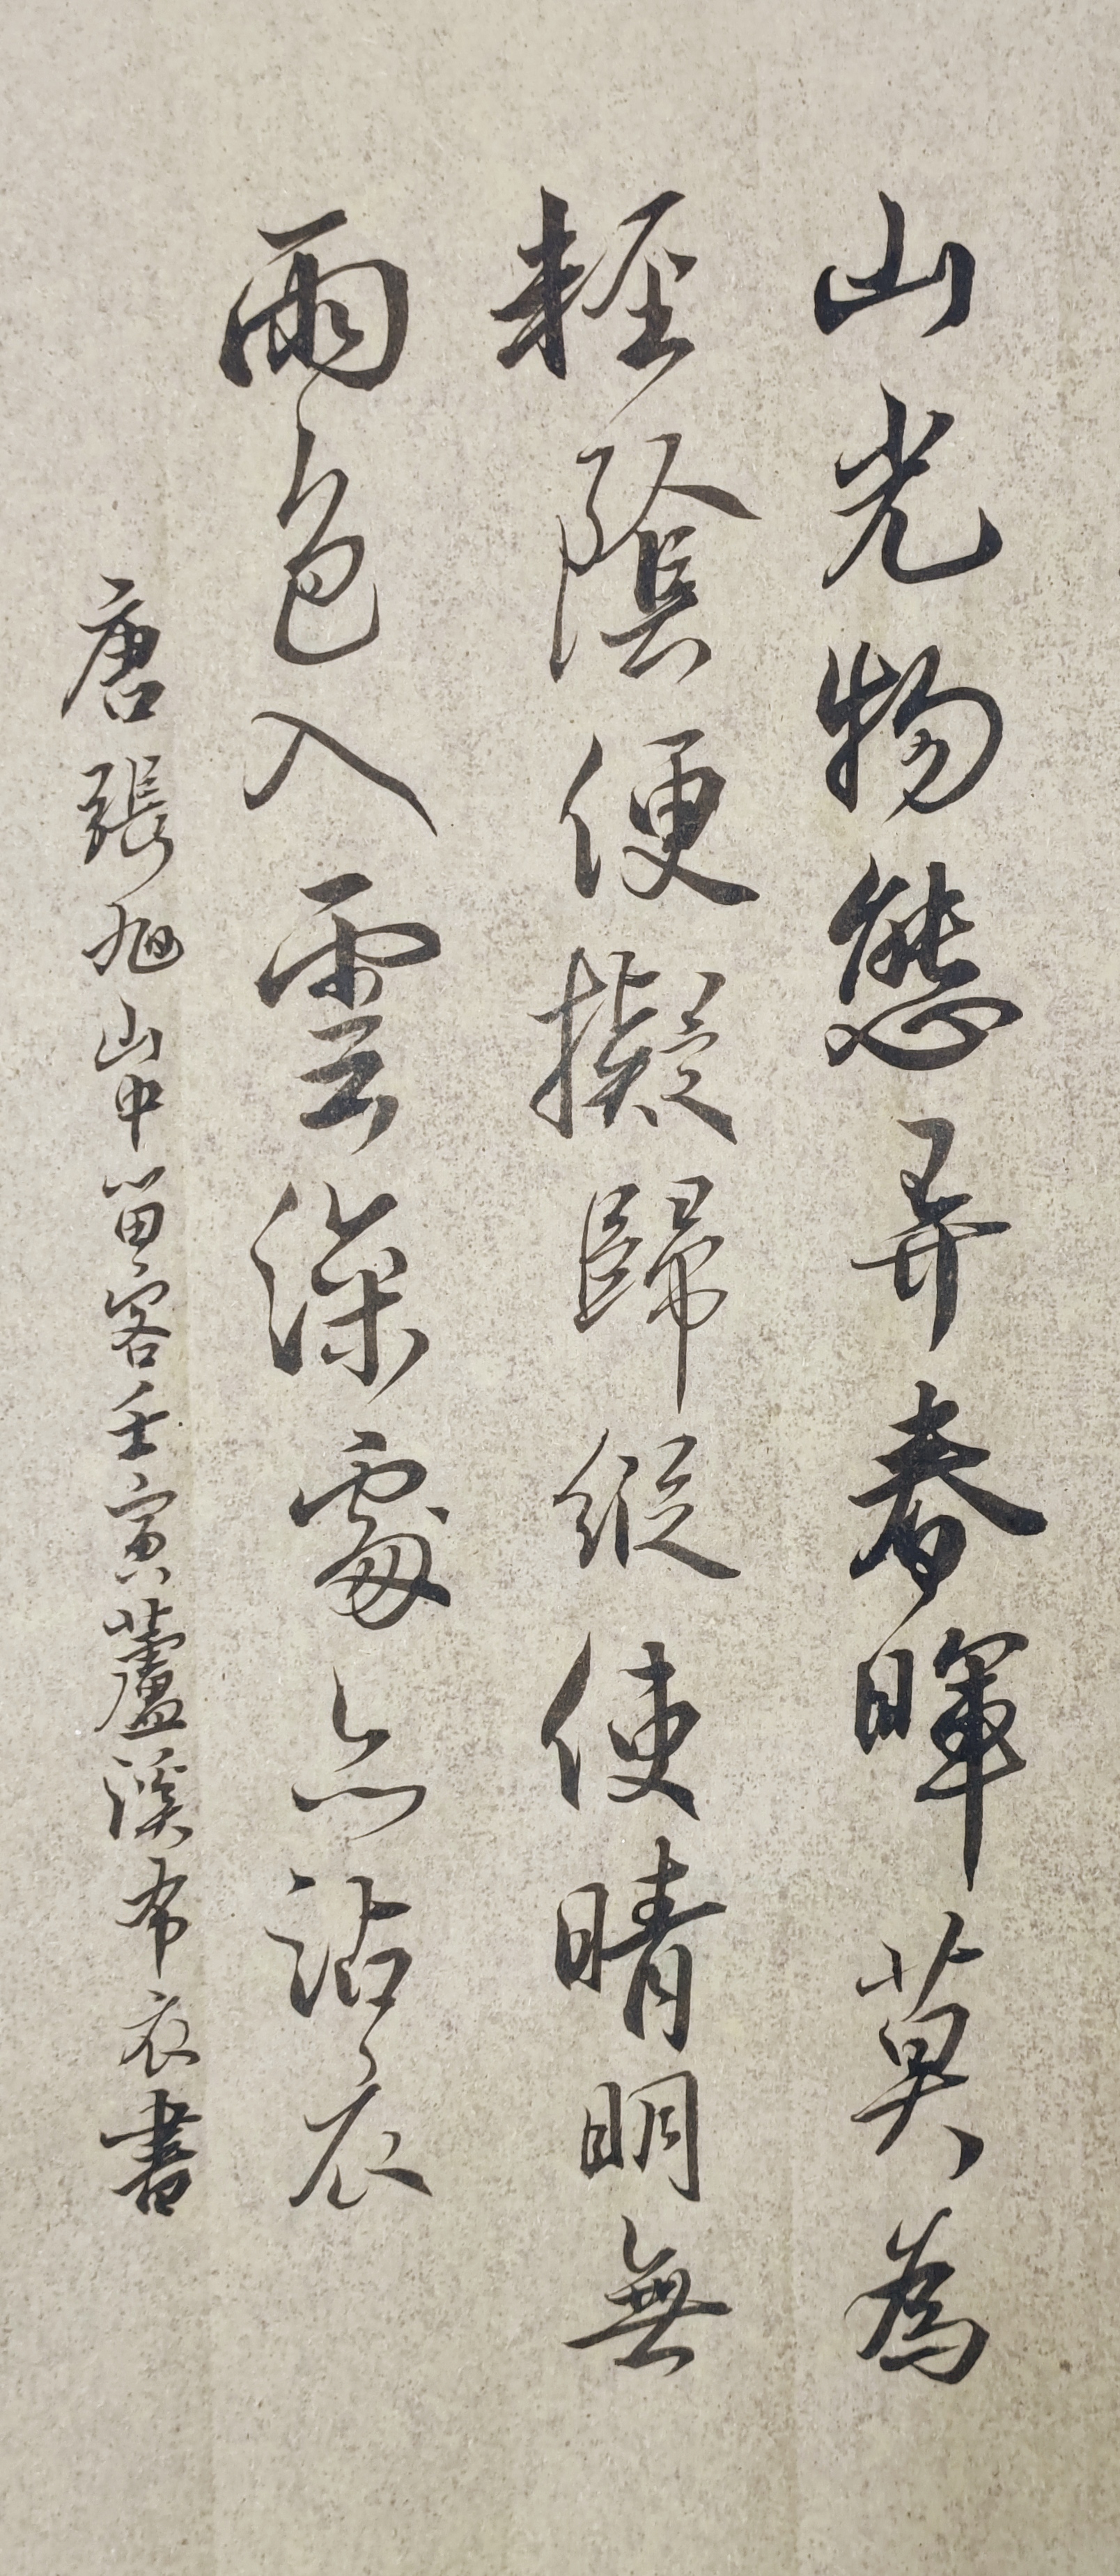 山光物態弄春暉莫為
輕陰便擬歸縱使晴明無
雨色入雲深處亦沾衣
唐張旭山中留客壬寅蘆溪布衣書